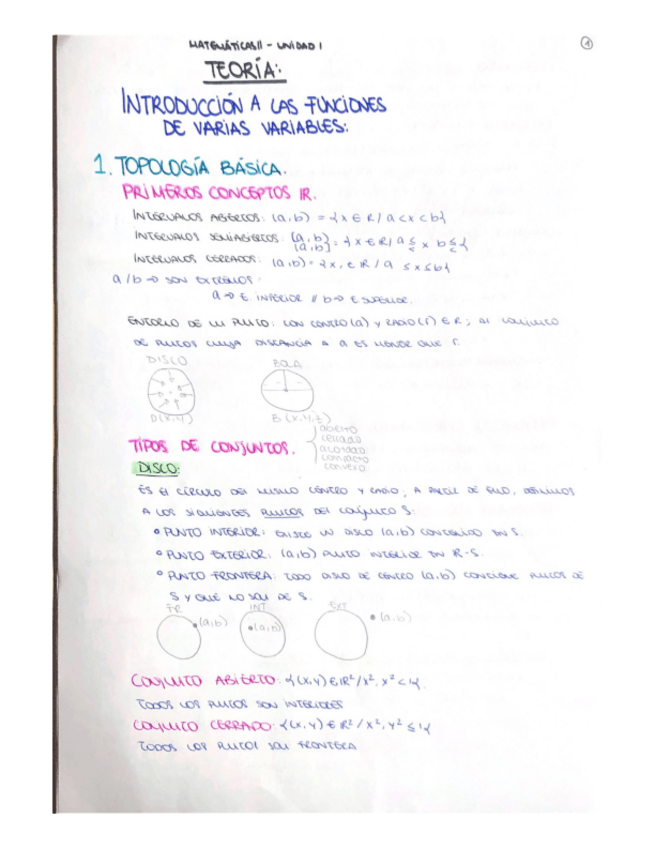 MATEMÁTICAS II - UNIDAD 1
1
TEORÍA:
INTRODUCCIÓN A LAS FUNCIONES
DE VARIAS VARIABLES:
1. TOPOLOGÍA BÁSICA.
PRIMEROS CONCEPTOS IR.
INTERVALOS ABIERTOS: (a,b) = {x ∈ R / a < x < b}
INTERVALOS SEMIABIERTOS: [a,b) (a,b] = {x ∈ R / a ≤ < x b ≤ < }
INTERVALOS CERRADOS: (a,b) = {x, ∈ R / a ≤ x ≤ b}
a / b → SON EXTREMOS:
a → E. INFERIOR // b → E SUPERIOR.
ENTORNO DE UN PUNTO: CON CENTRO (a) Y RADIO (r) ∈ R; AL CONJUNTO
DE PUNTOS CUYA DISTANCIA A a ES MENOR QUE r.
DISCO BOLA
D(x,y) B(x,y,z)
TIPOS DE CONJUNTOS.
abierto
cerrado
acotado
compacto
convexo
DISCO:
ES EL CÍRCULO DEL MISMO CENTRO Y RADIO, A PARTIR DE ELLO, DEFINIMOS
A LOS SIGUIENTES PUNTOS DEL CONJUNTO S:
• PUNTO INTERIOR: EXISTE UN DISCO (a,b) CONTENIDO EN S.
• PUNTO EXTERIOR: (a,b) PUNTO INTERIOR EN R-S.
• PUNTO FRONTERA: TODO DISCO DE CENTRO (a,b) CONTIENE PUNTOS DE
S Y QUE NO SON DE S.
FR INT EXT
(a,b) (a,b) (a,b)
CONJUNTO ABIERTO: {(x,y) ∈ IR² / x², x² < 1}.
TODOS LOS PUNTOS SON INTERIORES
CONJUNTO CERRADO: {(x,y) ∈ IR² / x², y² ≤ 1}
TODOS LOS PUNTOS SON FRONTERA